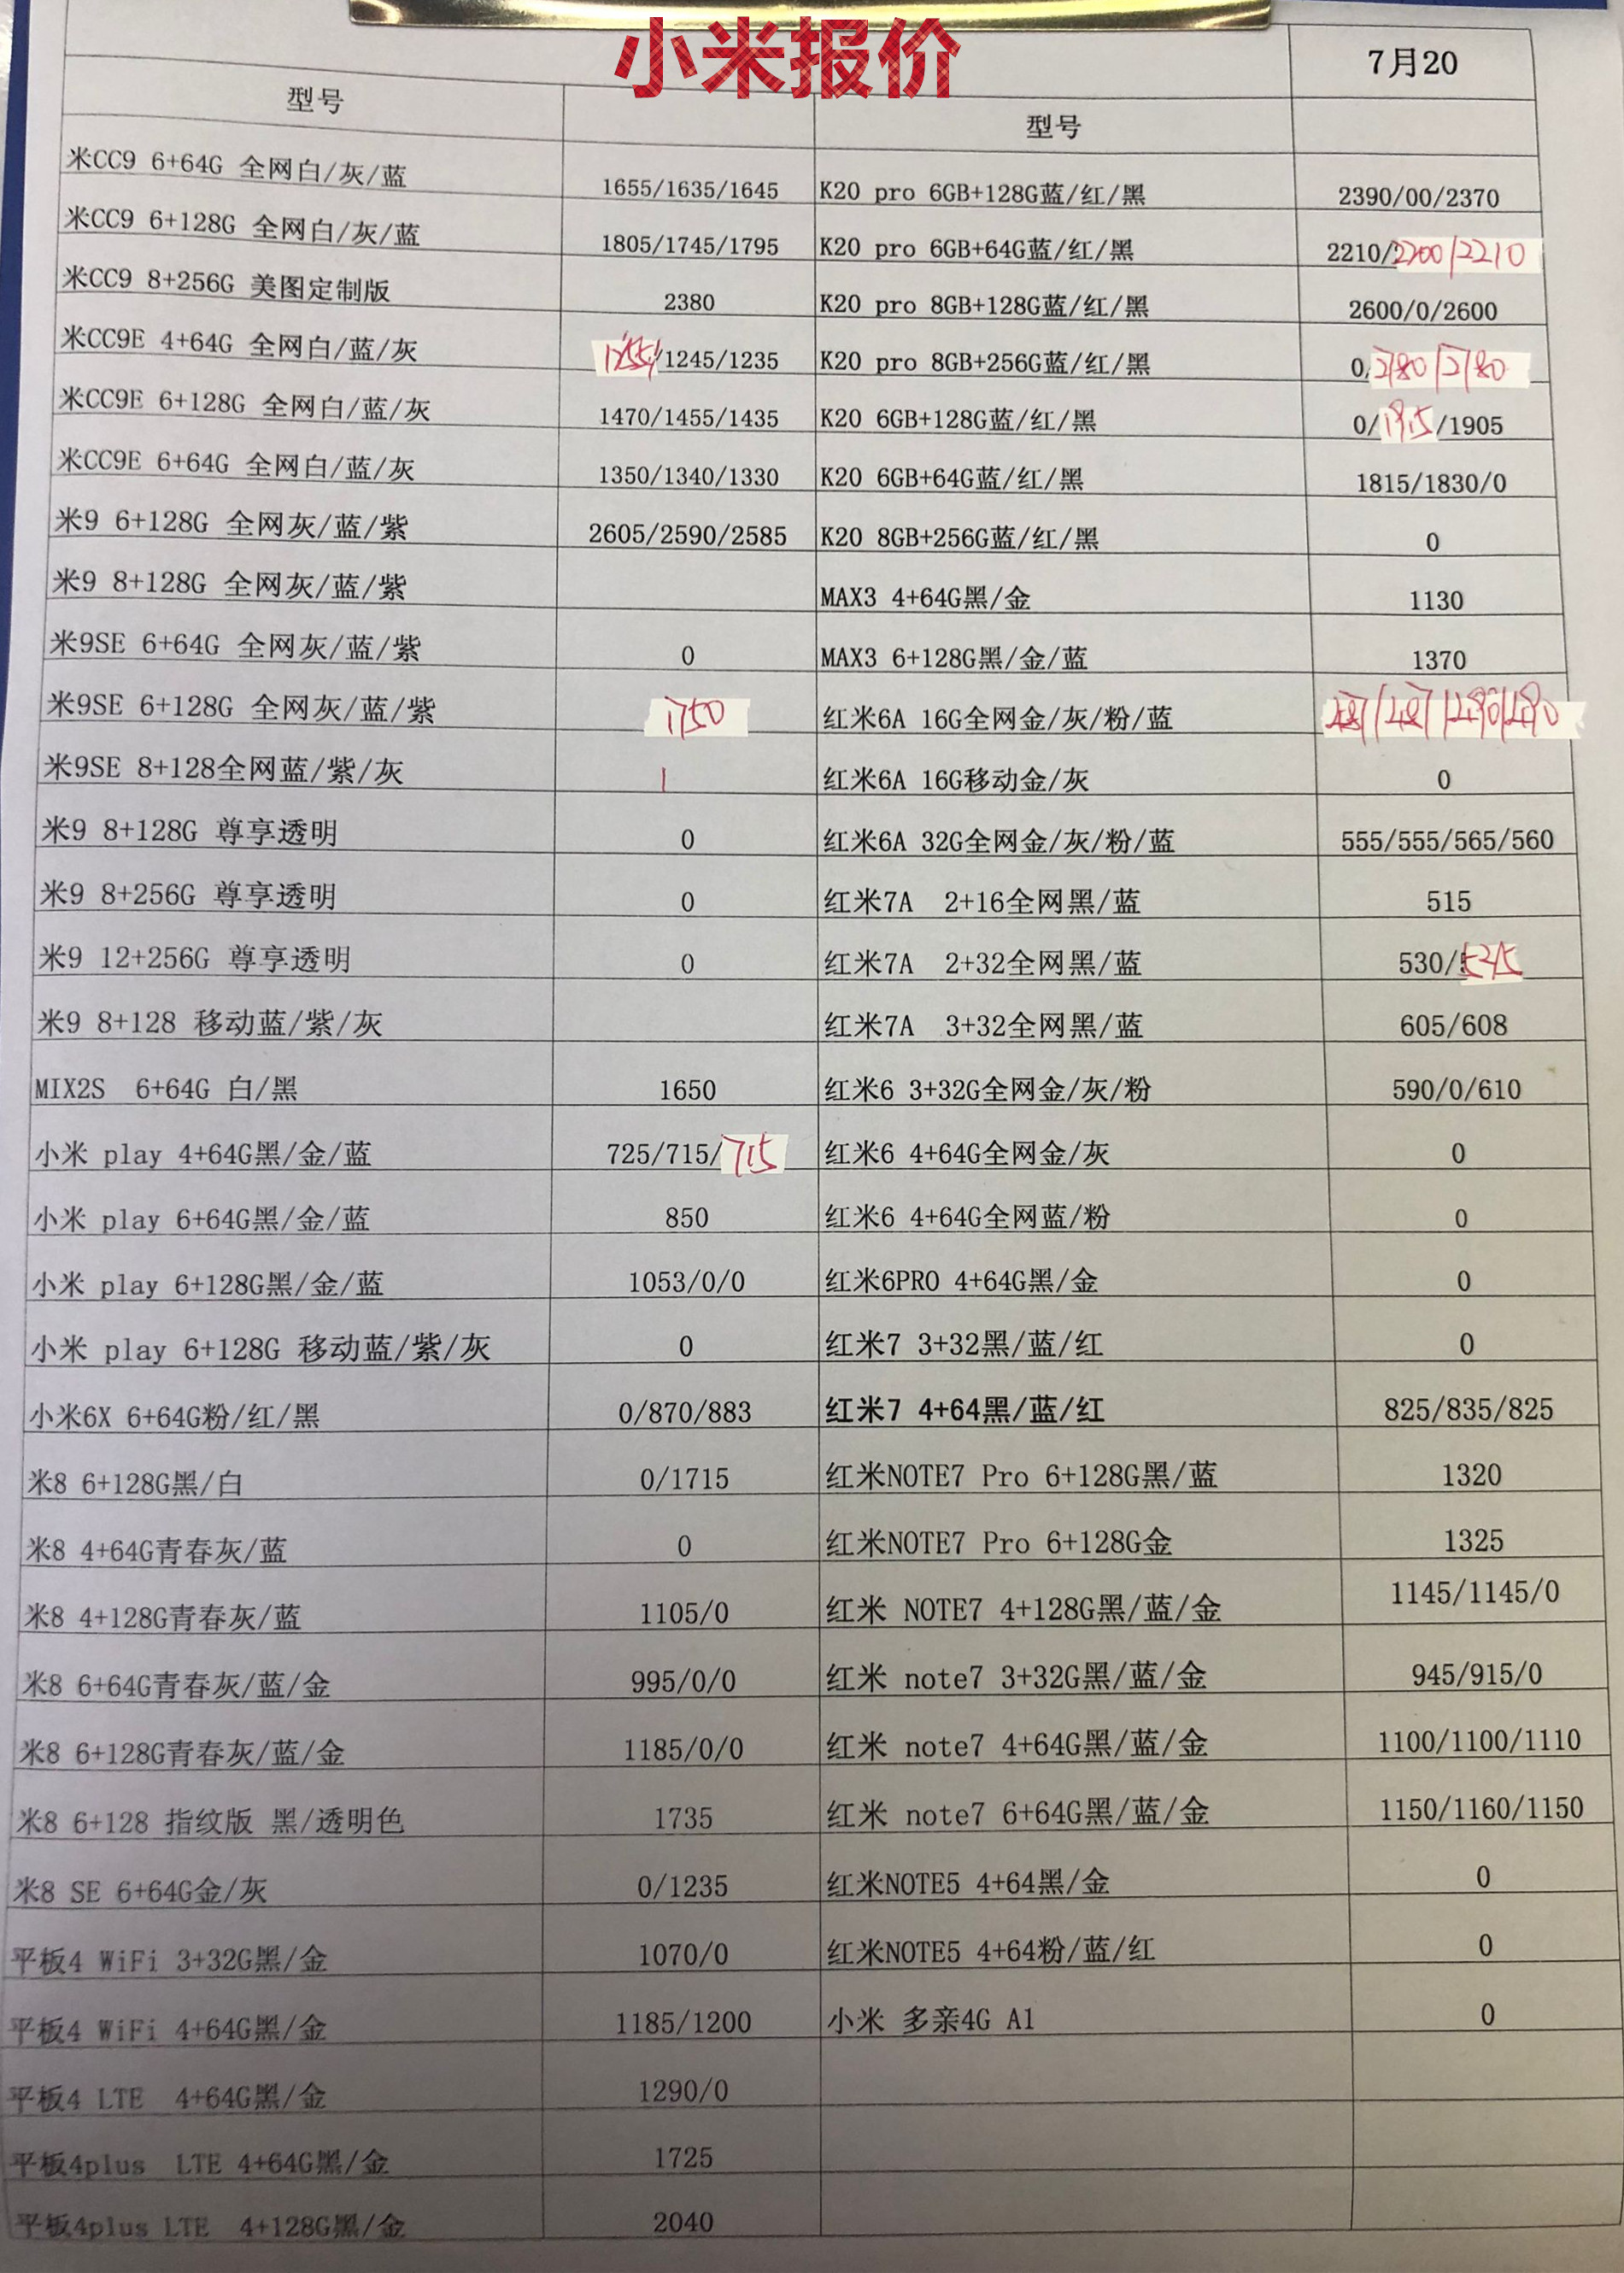 小米报价
7月20
型号 型号
米CC9 6+64G 全网白/灰/蓝 1655/1635/1645 K20 pro 6GB+128G蓝/红/黑 2390/00/2370
米CC9 6+128G 全网白/灰/蓝 1805/1745/1795 K20 pro 6GB+64G蓝/红/黑 2210/2200/2210
米CC9 8+256G 美图定制版 2380 K20 pro 8GB+128G蓝/红/黑 2600/0/2600
米CC9E 4+64G 全网白/蓝/灰 1255/1245/1235 K20 pro 8GB+256G蓝/红/黑 0/2780/2780
米CC9E 6+128G 全网白/蓝/灰 1470/1455/1435 K20 6GB+128G蓝/红/黑 0/1915/1905
米CC9E 6+64G 全网白/蓝/灰 1350/1340/1330 K20 6GB+64G蓝/红/黑 1815/1830/0
米9 6+128G 全网灰/蓝/紫 2605/2590/2585 K20 8GB+256G蓝/红/黑 0
米9 8+128G 全网灰/蓝/紫 MAX3 4+64G黑/金 1130
米9SE 6+64G 全网灰/蓝/紫 0 MAX3 6+128G黑/金/蓝 1370
米9SE 6+128G 全网灰/蓝/紫 1750 红米6A 16G全网金/灰/粉/蓝
米9SE 8+128全网蓝/紫/灰 红米6A 16G移动金/灰 0
米9 8+128G 尊享透明 0 红米6A 32G全网金/灰/粉/蓝 555/555/565/560
米9 8+256G 尊享透明 0 红米7A 2+16全网黑/蓝 515
米9 12+256G 尊享透明 0 红米7A 2+32全网黑/蓝 530/
米9 8+128 移动蓝/紫/灰 红米7A 3+32全网黑/蓝 605/608
MIX2S 6+64G 白/黑 1650 红米6 3+32G全网金/灰/粉 590/0/610
小米 play 4+64G黑/金/蓝 725/715/715 红米6 4+64G全网金/灰 0
小米 play 6+64G黑/金/蓝 850 红米6 4+64G全网蓝/粉 0
小米 play 6+128G黑/金/蓝 1053/0/0 红米6PRO 4+64G黑/金 0
小米 play 6+128G 移动蓝/紫/灰 0 红米7 3+32黑/蓝/红 0
小米6X 6+64G粉/红/黑 0/870/883 红米7 4+64黑/蓝/红 825/835/825
米8 6+128G黑/白 0/1715 红米NOTE7 Pro 6+128G黑/蓝 1320
米8 4+64G青春灰/蓝 0 红米NOTE7 Pro 6+128G金 1325
米8 4+128G青春灰/蓝 1105/0 红米 NOTE7 4+128G黑/蓝/金 1145/1145/0
米8 6+64G青春灰/蓝/金 995/0/0 红米 note7 3+32G黑/蓝/金 945/915/0
米8 6+128G青春灰/蓝/金 1185/0/0 红米 note7 4+64G黑/蓝/金 1100/1100/1110
米8 6+128 指纹版 黑/透明色 1735 红米 note7 6+64G黑/蓝/金 1150/1160/1150
米8 SE 6+64G金/灰 0/1235 红米NOTE5 4+64黑/金 0
平板4 WiFi 3+32G黑/金 1070/0 红米NOTE5 4+64粉/蓝/红 0
平板4 WiFi 4+64G黑/金 1185/1200 小米 多亲4G A1 0
平板4 LTE 4+64G黑/金 1290/0
平板4plus LTE 4+64G黑/金 1725
平板4plus LTE 4+128G黑/金 2040